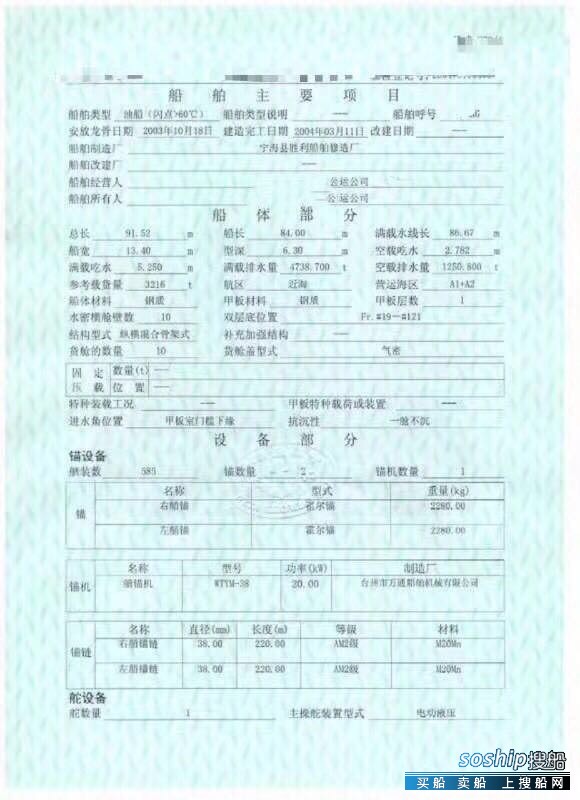 船 舶 主 要 项 目
船舶类型 油船（闪点>60℃） 船舶类型说明 —— 船舶呼号
安放龙骨日期 2003年10月18日 建造完工日期 2004年03月11日 改建日期 ——
船舶制造厂 宁海县胜利船舶修造厂
船舶改建厂 ——
船舶经营人 公运公司
船舶所有人 公运公司
船 体 部 分
总长 91.52 m 船长 84.00 m 满载水线长 86.67 m
船宽 13.40 m 型深 6.30 m 空载吃水 2.782 m
满载吃水 5.250 m 满载排水量 4738.700 t 空载排水量 1250.800 t
参考载货量 3216 t 航区 近海 营运海区 A1+A2
船体材料 钢质 甲板材料 钢质 甲板层数 1
水密横舱壁数 10 双层底位置 Fr.#19-#121
结构型式 纵横混合骨架式 补充加强结构 ——
货舱的数量 10 货舱盖型式 气密
固 定 数量(t) ——
压 载 位 置 ——
特种装载工况 —— 甲板特种载荷或装置 ——
进水角位置 甲板室门槛下缘 抗沉性 一舱不沉
设 备 部 分
锚设备
舾装数 585 锚数量 2 锚机数量 1
锚 名称 型式 重量(kg)
右艏锚 霍尔锚 2280.00
左艏锚 霍尔锚 2280.00
锚机 名称 型号 功率(kW) 制造厂
艏锚机 WTYM-38 20.00 台州市万通船舶机械有限公司
锚链 名称 直径(mm) 长度(m) 等级 材料
右艏锚链 38.00 220.00 AM2级 M20Mn
左艏锚链 38.00 220.00 AM2级 M20Mn
舵设备
舵数量 1 主操舵装置型式 电动液压
soship搜船
买船 卖船 上搜船网